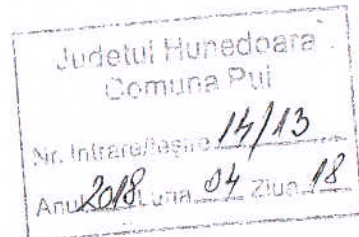 Judetul Hunedoara
Comuna Pui
Nr. Intrare/Iesire 14/13
Anul 2018 Luna 04 Ziua 18